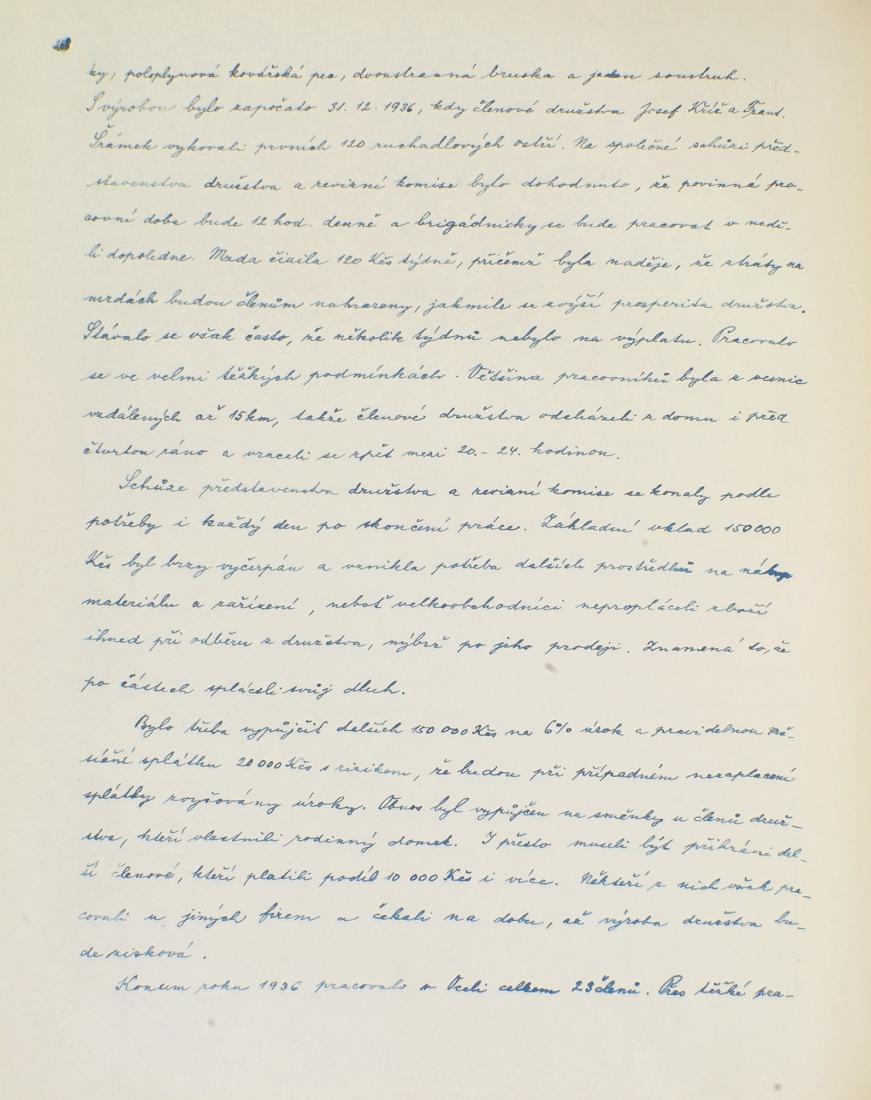 ky, poloplynová kovářská pec, dvoustranná bruska a jeden soustruh.
S výrobou bylo započato 31. 12. 1936, kdy členové družstva Josef Kříž a Frant.
Šrámek vykovali prvních 120 ruchadlových ostří. Na společné schůzi před-
stavenstva družstva a revizní komise bylo dohodnuto, že povinná pra-
covní doba bude 12 hod. denně a brigádnicky se bude pracovat v nedě-
li dopoledne. Mzda činila 120 Kčs týdně, přičemž byla naděje, že ztráty na
mzdách budou členům nahrazeny, jakmile se zvýší prosperita družstva.
Stávalo se však často, že několik týdnů nebylo na výplatu. Pracovalo
se ve velmi těžkých podmínkách. Většina pracovníků byla z vesnic
vzdálených až 15 km, takže členové družstva odcházeli z domu i před
čtvrtou ráno a vraceli se zpět mezi 20.- 24. hodinou.
Schůze představenstva družstva a revizní komise se konaly podle
potřeby i každý den po skončení práce. Základní vklad 150 000
Kčs byl brzy vyčerpán a vznikla potřeba dalších prostředků na nákup
materiálu a zařízení, neboť velkoobchodníci nepropláceli zboží
ihned při odběru z družstva, nýbrž po jeho prodeji. Znamená to, že
po částech spláceli svůj dluh.
Bylo třeba vypůjčit dalších 150 000 Kčs na 6% úrok a pravidelnou mě-
síční splátku 20 000 Kčs s rizikem, že budou při případném nezaplacení
splátky zvyšovány úroky. Obnos byl vypůjčen na směnky u členů druž-
stva, kteří vlastnili rodinný domek. I přesto museli být přibráni dal-
ší členové, kteří platili podíl 10 000 Kčs i více. Někteří z nich však pra-
covali u jiných firem a čekali na dobu, až výroba družstva bu-
de zisková.
Koncem roku 1936 pracovalo v Oceli celkem 23 členů. Přes těžké pra-